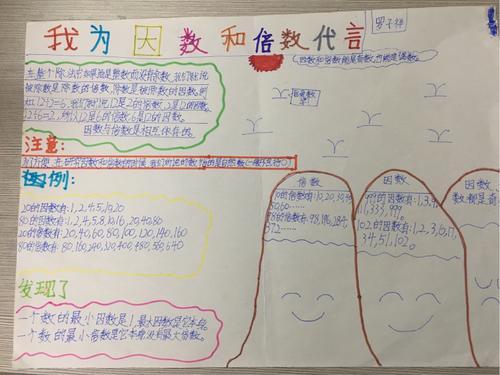 我为因数和倍数代言
罗子祥
(因数和倍数都是奇数,也能是偶数。
在整个除法中如果商是整数而没有余数,我们就说
被除数是除数的倍数,除数是被除数的因数。例
如12÷2=6,我们就说12是2的倍数,2是12的因数。
12÷6=2,所以12是6的倍数,6是12的因数。
因数与倍数是相互依存的。
注意:
为了方便,在研究因数和倍数的时候,我们所说的数指的是自然数(一般不包括0)
举例:
20的因数有:1,2,4,5,10,20
80的因数有:1,2,4,5,8,10,16,20,40,80
20的倍数有:20,40,60,80,100,120,140,160
80的倍数有:80,160,240,320,400,480,560,640
发现了
一个数的最小因数是1,最大因数是它本身。
一个数的最小倍数是它本身,没有最大倍数。
倍数
10的倍数有:10,20,30
因数
99的因数有:1,3,9,
11,33,99.
102的因数有:1,2,3,6,17,
34,51,102。
因数
数都是奇